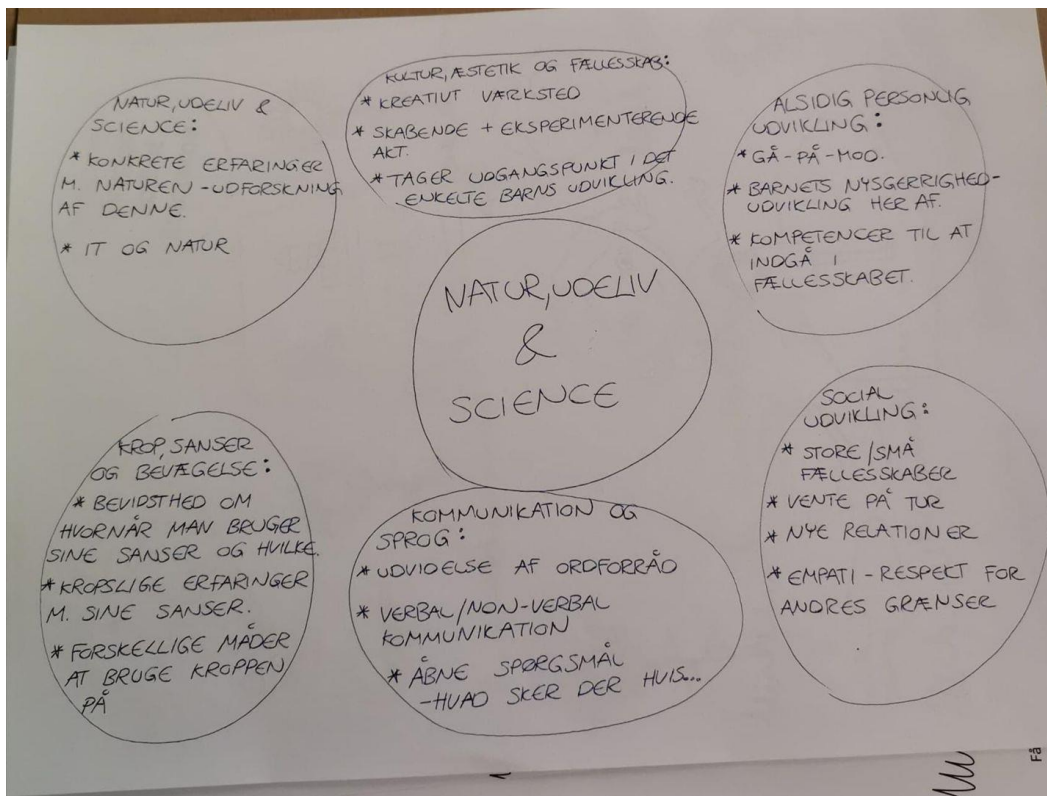 NATUR, UDELIV &
SCIENCE:
* KONKRETE ERFARINGER
M. NATUREN - UDFORSKNING
AF DENNE.
* IT OG NATUR
KULTUR, ÆSTETIK OG FÆLLESSKAB:
* KREATIVT VÆRKSTED
* SKABENDE + EKSPERIMENTERENDE
AKT.
* TAGER UDGANGSPUNKT I DET
ENKELTE BARNS UDVIKLING.
ALSIDIG PERSONLIG
UDVIKLING:
* GÅ-PÅ-MOD.
* BARNETS NYSGERRIGHED-
UDVIKLING HER AF.
* KOMPETENCER TIL AT
INDGÅ I
FÆLLESSKABET.
NATUR, UDELIV
&
SCIENCE
KROP, SANSER
OG BEVÆGELSE:
* BEVIDSTHED OM
HVORNÅR MAN BRUGER
SINE SANSER OG HVILKE.
* KROPSLIGE ERFARINGER
M. SINE SANSER.
* FORSKELLIGE MÅDER
AT BRUGE KROPPEN
PÅ
KOMMUNIKATION OG
SPROG:
* UDVIDELSE AF ORDFORRÅD
* VERBAL/NON-VERBAL
KOMMUNIKATION
* ÅBNE SPØRGSMÅL
-HVAD SKER DER HVIS...
SOCIAL
UDVIKLING:
* STORE/SMÅ
FÆLLESSKABER
* VENTE PÅ TUR
* NYE RELATIONER
* EMPATI - RESPEKT FOR
ANDRES GRÆNSER
Få